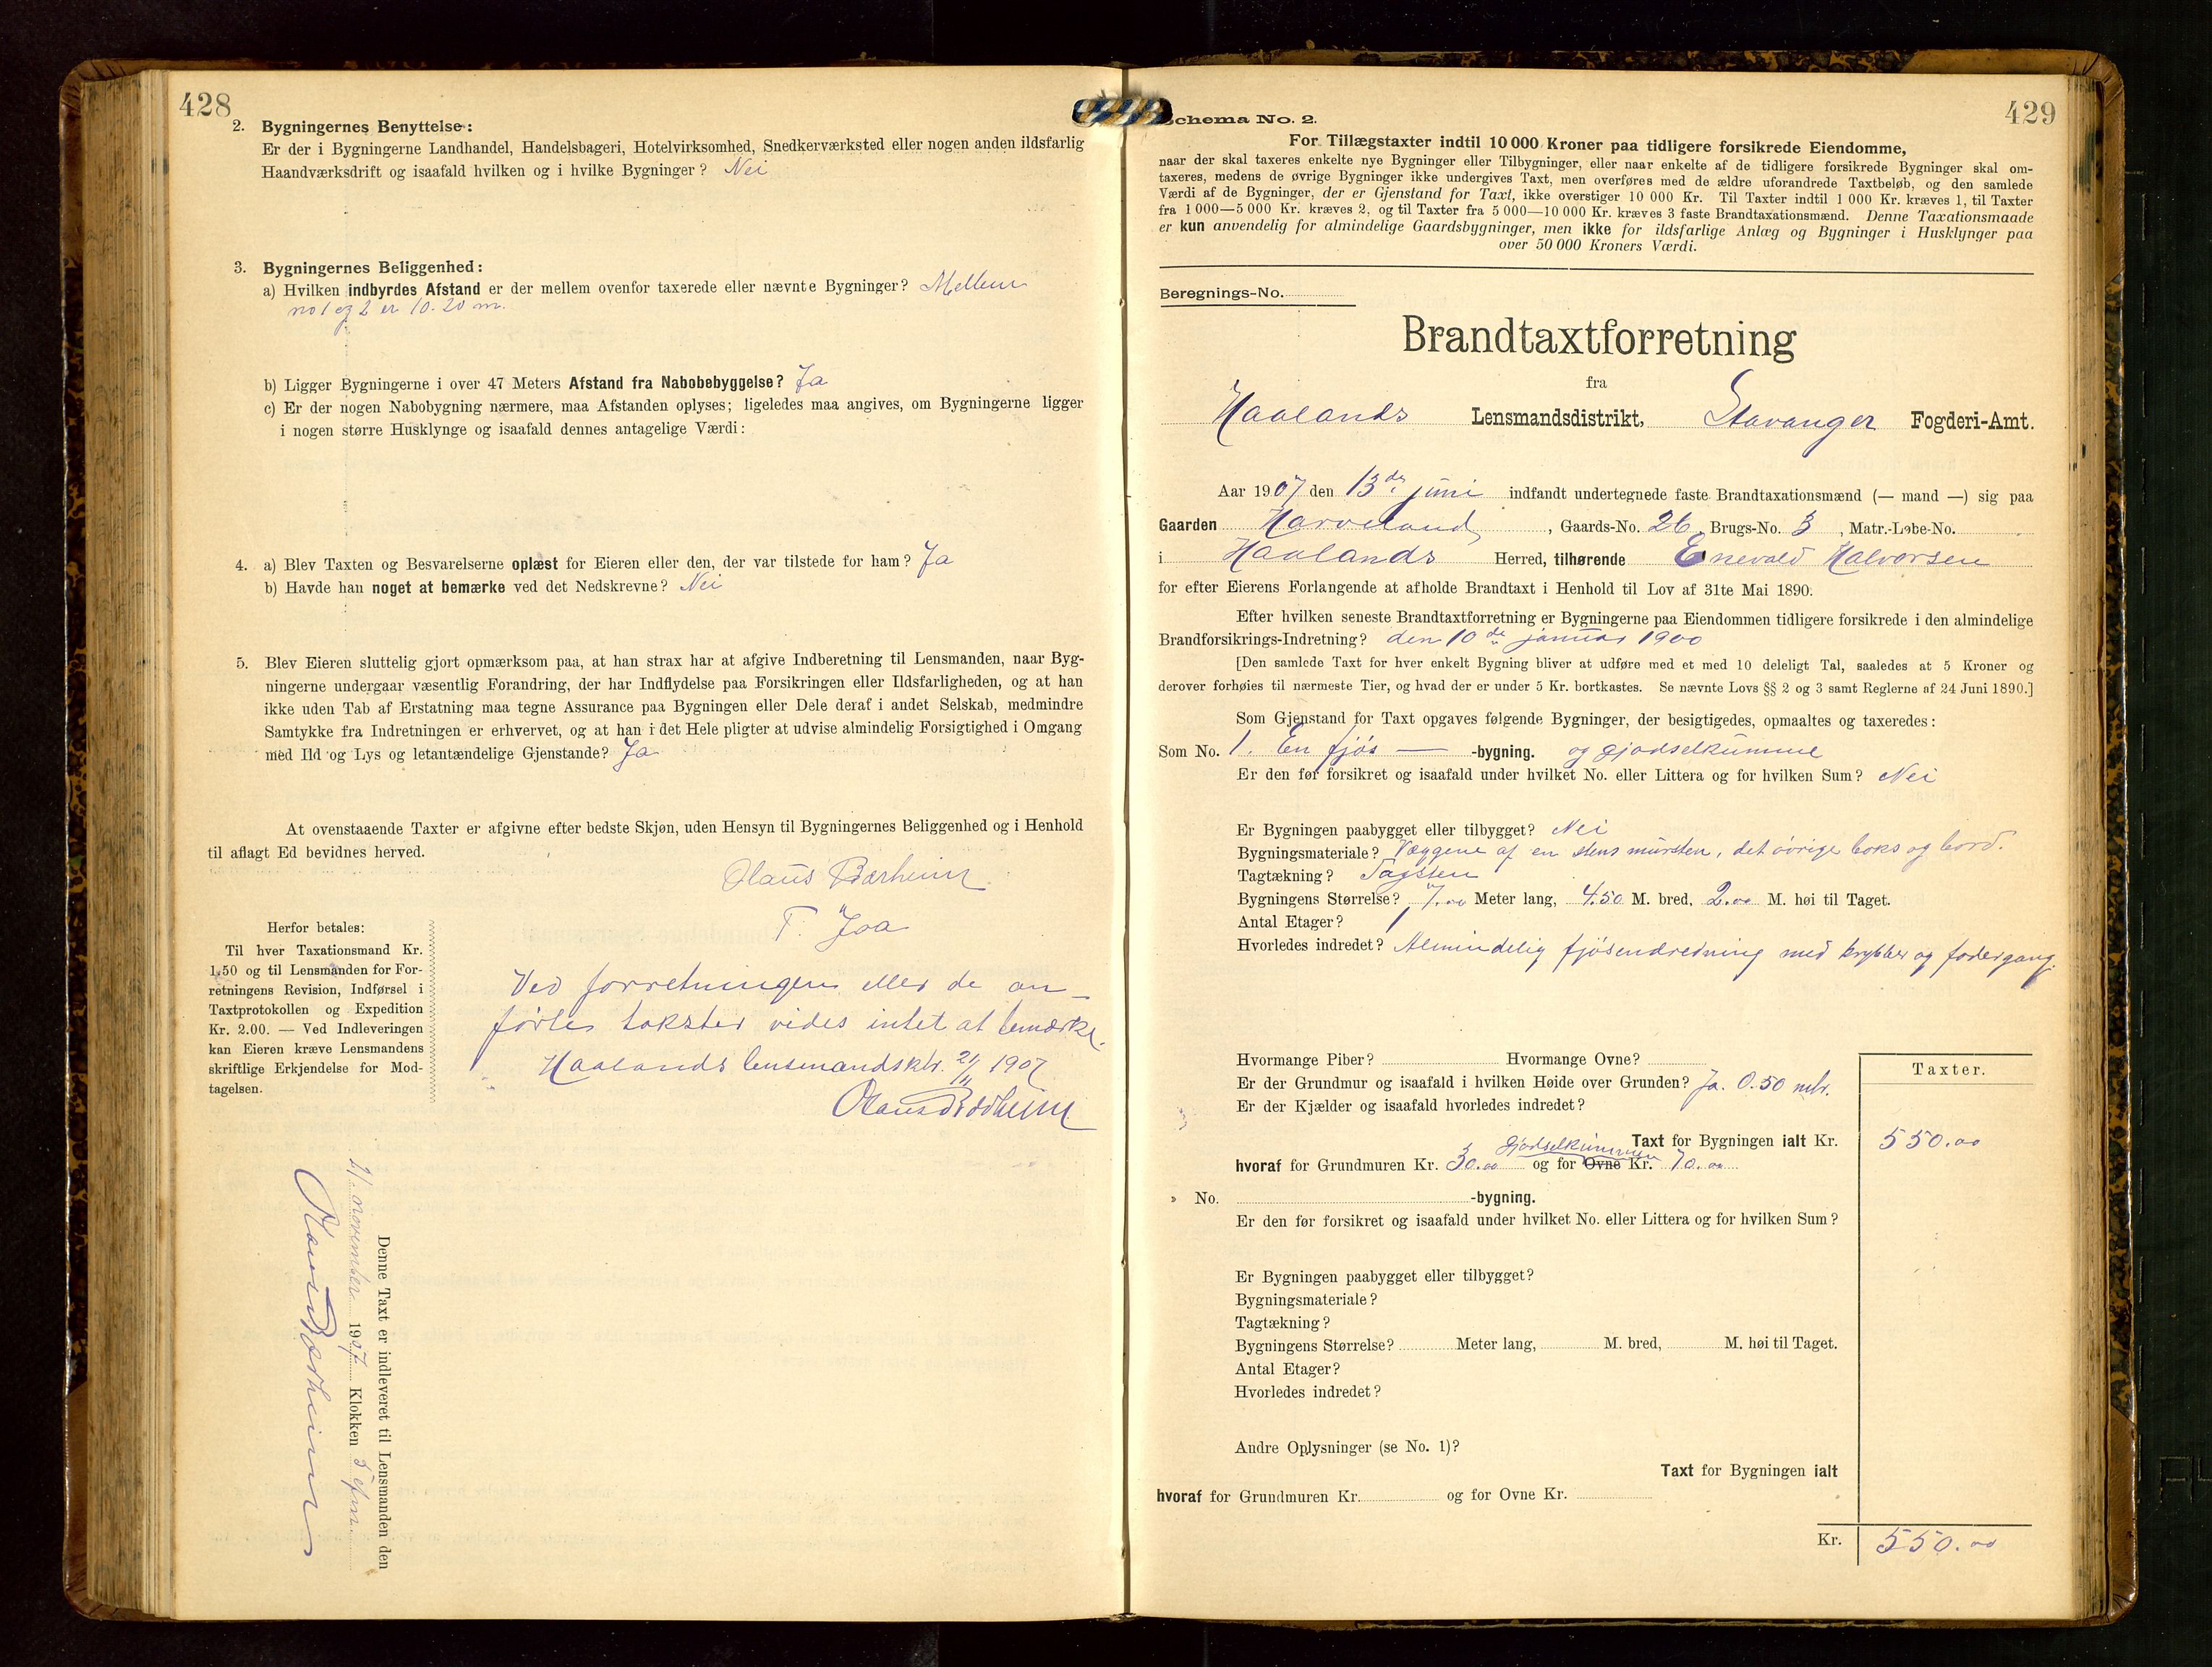 428
2. Bygningernes Benyttelse:
Er der i Bygningerne Landhandel, Handelsbageri, Hotelvirksomhed, Snedkerværksted eller nogen anden ildsfarlig
Haandværksdrift og isaafald hvilken og i hvilke Bygninger? Nei
3. Bygningernes Beliggenhed:
a) Hvilken indbyrdes Afstand er der mellem ovenfor taxerede eller nævnte Bygninger? Mellem
no 1 og 2 er 10.20 m.
b) Ligger Bygningerne i over 47 Meters Afstand fra Nabobebyggelse? Ja
c) Er der nogen Nabobygning nærmere, maa Afstanden oplyses; ligeledes maa angives, om Bygningerne ligger
i nogen større Husklynge og isaafald dennes antagelige Værdi:
4. a) Blev Taxten og Besvarelserne oplæst for Eieren eller den, der var tilstede for ham? Ja
b) Havde han noget at bemærke ved det Nedskrevne? Nei
5. Blev Eieren sluttelig gjort opmærksom paa, at han strax har at afgive Indberetning til Lensmanden, naar Byg-
ningerne undergaar væsentlig Forandring, der har Indflydelse paa Forsikringen eller Ildsfarligheden, og at han
ikke uden Tab af Erstatning maa tegne Assurance paa Bygningen eller Dele deraf i andet Selskab, medmindre
Samtykke fra Indretningen er erhvervet, og at han i det Hele pligter at udvise almindelig Forsigtighed i Omgang
med Ild og Lys og letantændelige Gjenstande? Ja
At ovenstaaende Taxter er afgivne efter bedste Skjøn, uden Hensyn til Bygningernes Beliggenhed og i Henhold
til aflagt Ed bevidnes herved.
Olaus Bærheim
T. Joa
Herfor betales:
Til hver Taxationsmand Kr.
1.50 og til Lensmanden for For-
retningens Revision, Indførsel i
Taxtprotokollen og Expedition
Kr. 2.00. — Ved Indleveringen
kan Eieren kræve Lensmandens
skriftlige Erkjendelse for Mod-
tagelsen.
Ved forretningen eller de an-
førte takster vides intet at bemærke.
Haalands lensmandsktr. 21/11 1907
Olaus Bærheim
Denne Taxt er indleveret til Lensmanden den
21. november 1907 Klokken 5 efm.
Olaus Bærheim
429
Schema No. 2.
For Tillægstaxter indtil 10 000 Kroner paa tidligere forsikrede Eiendomme,
naar der skal taxeres enkelte nye Bygninger eller Tilbygninger, eller naar enkelte af de tidligere forsikrede Bygninger skal om-
taxeres, medens de øvrige Bygninger ikke undergives Taxt, men overføres med de ældre uforandrede Taxtbeløb, og den samlede
Værdi af de Bygninger, der er Gjenstand for Taxt, ikke overstiger 10 000 Kr. Til Taxter indtil 1 000 Kr. kræves 1, til Taxter
fra 1 000—5 000 Kr. kræves 2, og til Taxter fra 5 000—10 000 Kr. kræves 3 faste Brandtaxationsmænd. Denne Taxationsmaade
er kun anvendelig for almindelige Gaardsbygninger, men ikke for ildsfarlige Anlæg og Bygninger i Husklynger paa
over 50 000 Kroners Værdi.
Beregnings-No.
Brandtaxtforretning
fra
Haalands Lensmandsdistrikt, Stavanger Fogderi-Amt.
Aar 1907 den 13de juni indfandt undertegnede faste Brandtaxationsmænd (— mand —) sig paa
Gaarden Harveland, Gaards-No. 26, Brugs-No. 3, Matr.-Løbe-No.
i Haalands Herred, tilhørende Enevald Halvorsen
for efter Eierens Forlangende at afholde Brandtaxt i Henhold til Lov af 31te Mai 1890.
Efter hvilken seneste Brandtaxtforretning er Bygningerne paa Eiendommen tidligere forsikrede i den almindelige
Brandforsikrings-Indretning? den 10de januar 1900
[Den samlede Taxt for hver enkelt Bygning bliver at udføre med et med 10 deleligt Tal, saaledes at 5 Kroner og
derover forhøies til nærmeste Tier, og hvad der er under 5 Kr. bortkastes. Se nævnte Lovs §§ 2 og 3 samt Reglerne af 24 Juni 1890.]
Som Gjenstand for Taxt opgaves følgende Bygninger, der besigtigedes, opmaaltes og taxeredes:
Som No. 1. En fjøs — -bygning. og gjødselkumme
Er den før forsikret og isaafald under hvilket No. eller Littera og for hvilken Sum? Nei
Er Bygningen paabygget eller tilbygget? Nei
Bygningsmateriale? Væggene af en stens mursten, det øvrige boks og bord.
Tagtækning? Tagsten
Bygningens Størrelse? 7.00 Meter lang, 4.50 M. bred, 2.00 M. høi til Taget.
Antal Etager? 1
Hvorledes indredet? Almindelig fjøsendredning med krybber og fodergang.
Hvormange Piber? Hvormange Ovne?
Taxter.
Er der Grundmur og isaafald i hvilken Høide over Grunden? Ja. 0.50 mtr.
Er der Kjælder og isaafald hvorledes indredet?
Taxt for Bygningen ialt Kr. 550.00
gjødselkummen
hvoraf for Grundmuren Kr. 30.00 og for Ovne Kr. 70.00
» No. -bygning.
Er den før forsikret og isaafald under hvilket No. eller Littera og for hvilken Sum?
Er Bygningen paabygget eller tilbygget?
Bygningsmateriale?
Tagtækning?
Bygningens Størrelse? Meter lang, M. bred, M. høi til Taget.
Antal Etager?
Hvorledes indredet?
Andre Oplysninger (se No. 1)?
Taxt for Bygningen ialt
hvoraf for Grundmuren Kr. og for Ovne Kr.
Kr. 550.00